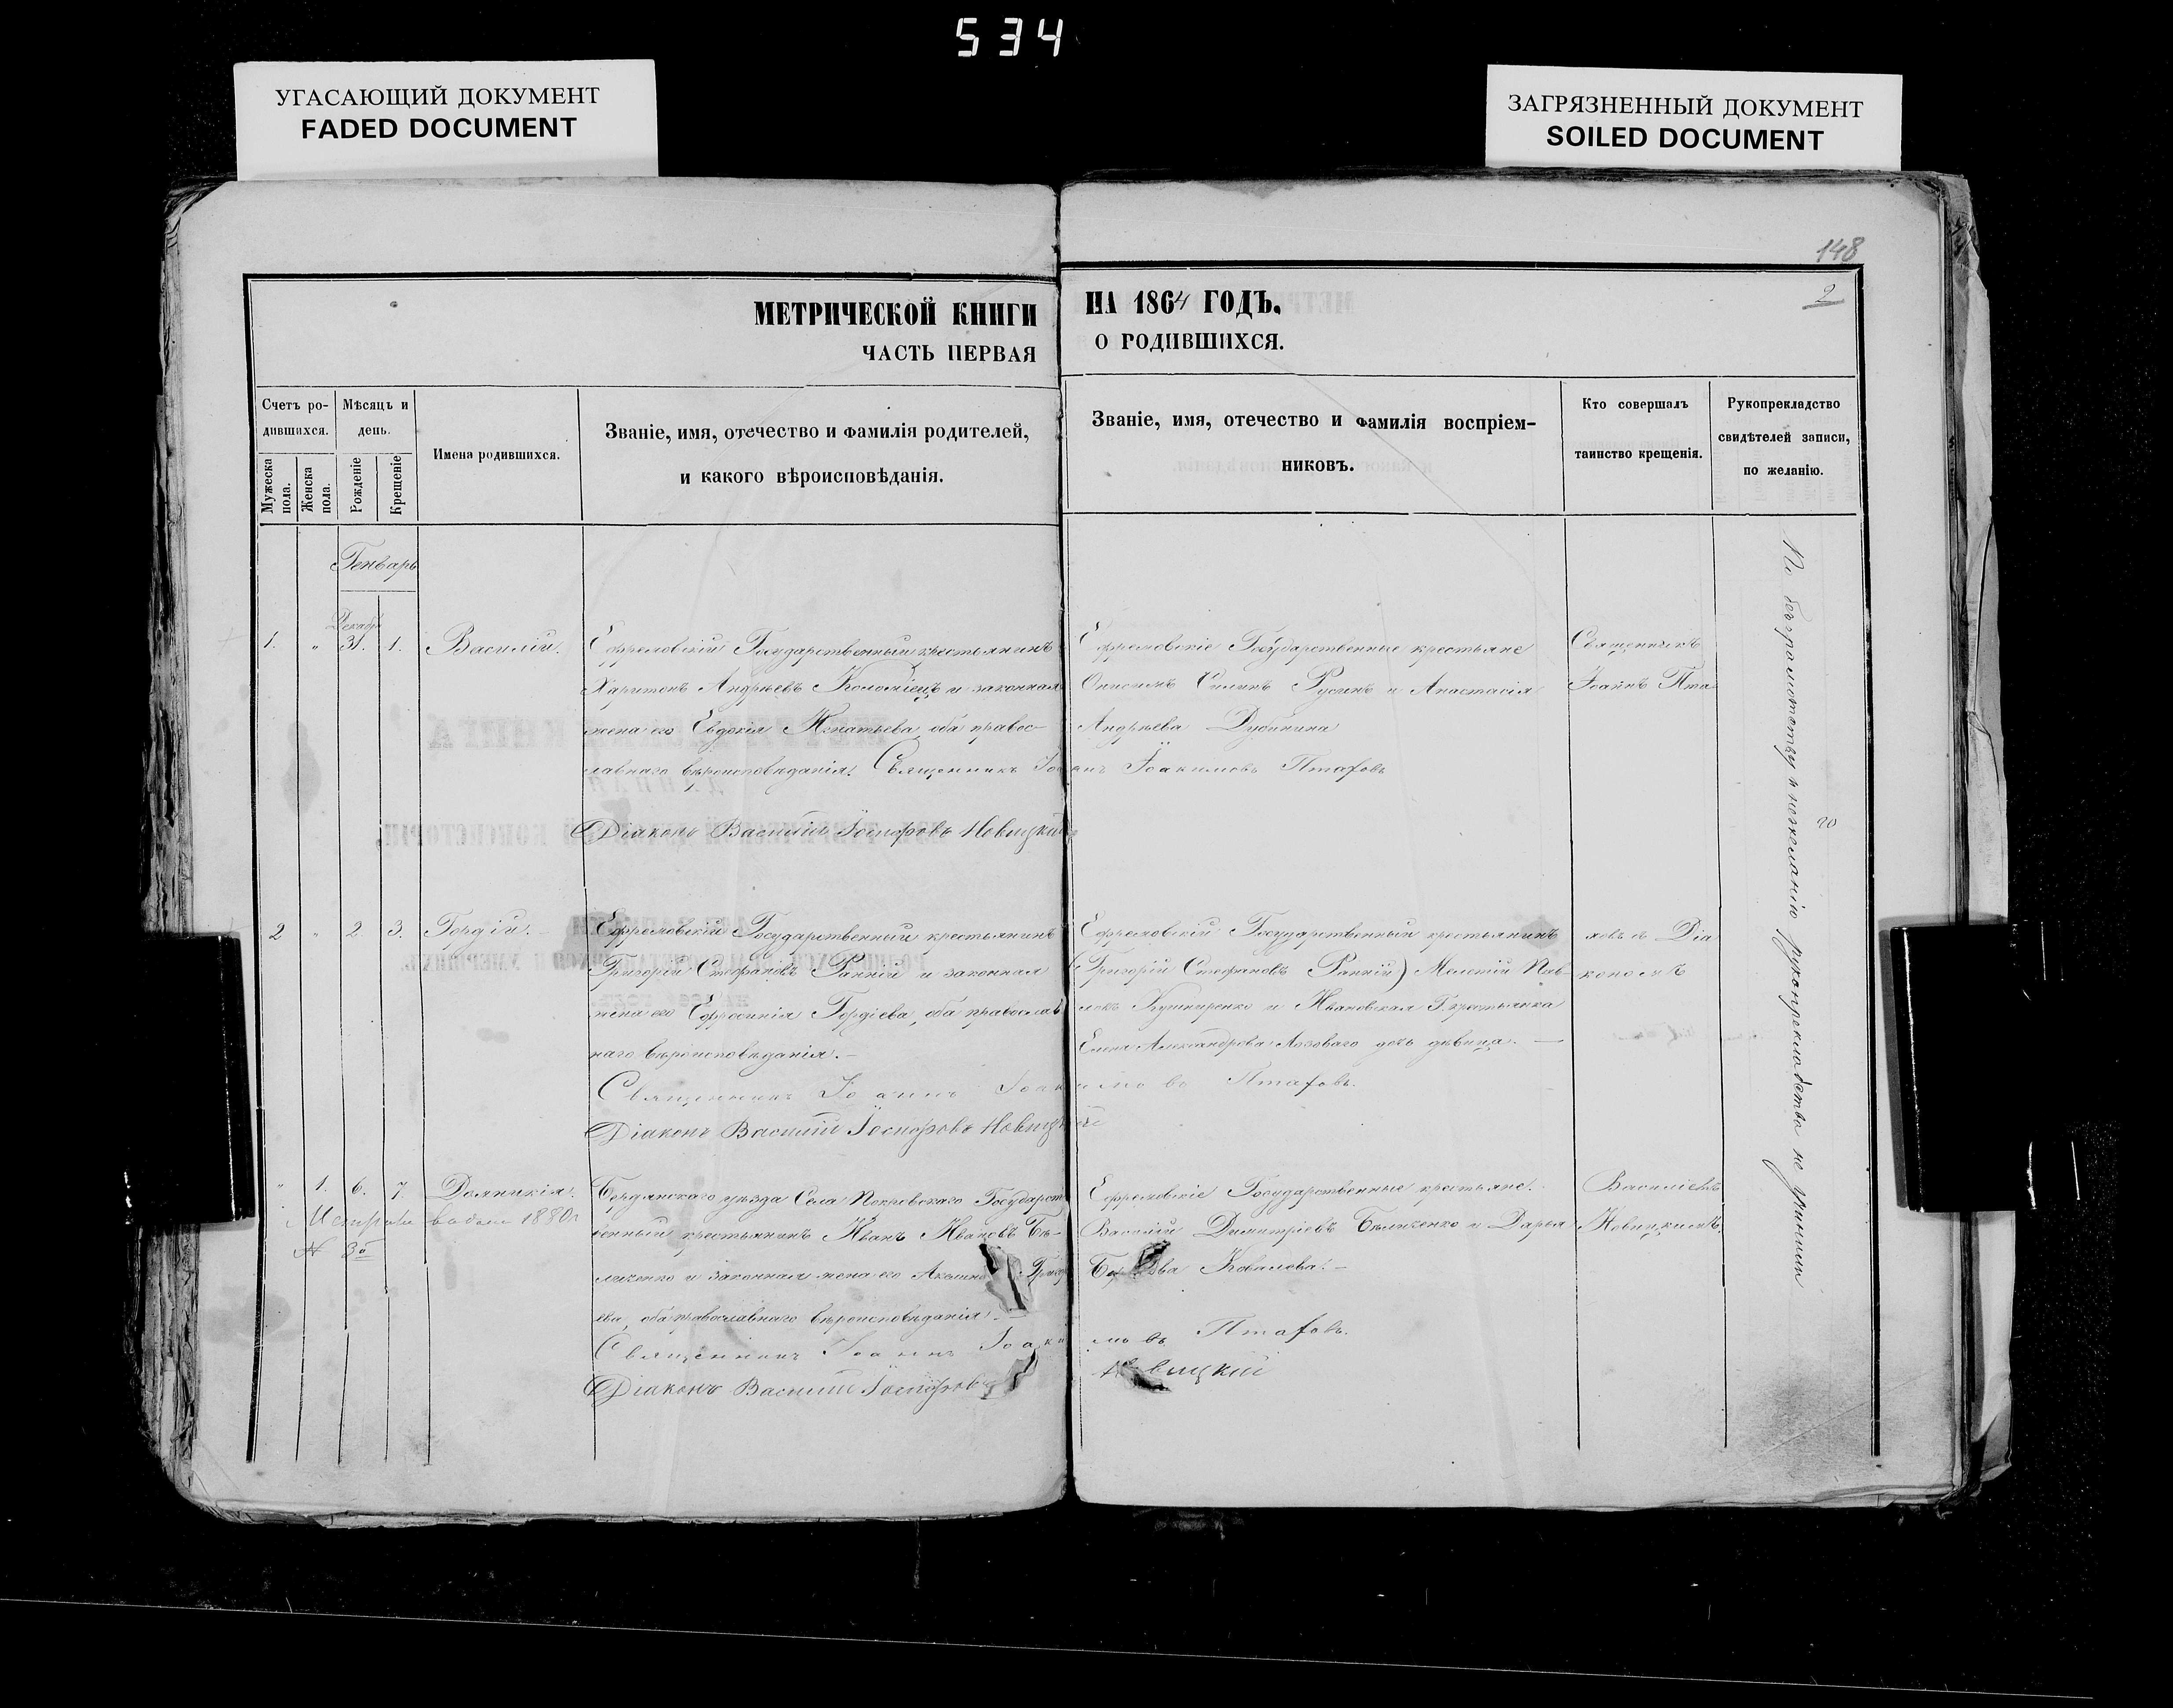 534
УГАСАЮЩИЙ ДОКУМЕНТ
FADED DOCUMENT
ЗАГРЯЗНЕННЫЙ ДОКУМЕНТ
SOILED DOCUMENT
148
2
МЕТРИЧЕСКОЙ КНИГИ НА 1864 ГОДЪ.
ЧАСТЬ ПЕРВАЯ О РОДИВШИХСЯ.
Счетъ ро-
дившихся.
Мужеска пола.
Женска пола.
Мѣсяцъ и
день.
Рожденіе
Крещеніе
Имена родившихся.
Званіе, имя, отечество и фамилія родителей,
и какого вѣроисповѣданія.
Званіе, имя, отечество и фамилія воспріем-
никовъ.
Кто совершалъ
таинство крещенія.
Рукопрекладство
свидѣтелей записи,
по желанію.
Генварь
Декабр
1. " 31. 1. Василій.
Ефремовскій Государственный крестьянинъ
Харитонъ Андрѣевъ Коломіецъ и законная
жена его Евдокія Игнатьева, оба правос-
лавнаго вѣроисповѣданія. Священникъ Іоаннъ Іоакимовъ Птафовъ
Діаконъ Василій Іосифовъ Новицкій
Ефремовскіе Государственные крестьяне
Онисимъ Силинъ Русинъ и Анастасія
Андрѣева Дубинина
Священникъ
Іоаннъ Пта
2 " 2 3. Гордій.
Ефремовскій Государственный крестьянинъ
Григорій Стефановъ Ранній и законная
жена его Ефросинія Гордіева, оба православ
наго вѣроисповѣданія.
Священникъ Іоаннъ Іоакимовъ Птафовъ.
Діаконъ Василій Іосифовъ Новицкій
Ефремовскій Государственный крестьянинъ
(Григорій Стефановъ Ранній) Мелетій Пав-
ловъ Кушниренко и Ивановская Г. крестьянка
Елена Александрова Лозоваго дочь дѣвица.
ховъ съ Діа
кономъ
" 1. 6. 7. Домникія.
Метрика выдана 1880 г
№ 30
Бердянскаго уѣзда Села Покровскаго Государст
венный крестьянинъ Иванъ Ивановъ Бѣ-
ликенко и законная жена его Акилина Григор
ева, оба православнаго вѣроисповѣданія.
Священникъ Іоаннъ Іоакимовъ Птафовъ.
Діаконъ Василій Іосифовъ Новицкій
Ефремовскіе Государственные крестьяне.
Василій Димитріевъ Бѣликенко и Дарья
Ковалова.
Василіемъ
Новицкимъ.
По безграмотству и нежеланію рукопрекладства не учинили